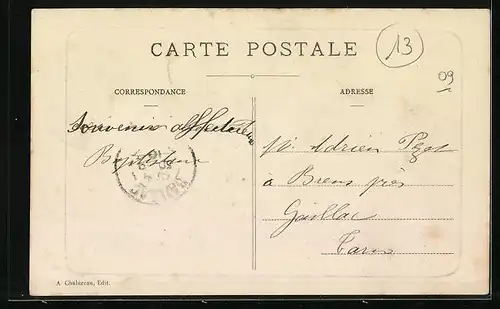 CARTE POSTALE
13
09
CORRESPONDANCE
ADRESSE
Souvenir affectueux
Mr Adrien Pezet
à Brens près
Gaillac
Tarn
A. Chalureau, Edit.